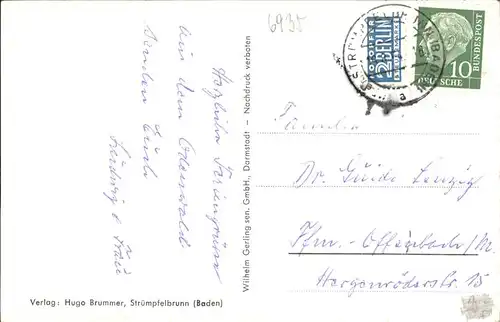 6935
Herzliche Feriengrüsse
aus dem Odenwald
senden Euch
u. Frau
Wilhelm Gerling sen. GmbH., Darmstadt — Nachdruck verboten
NOTOPFER
2 BERLIN
STEUERMARKE
STRÜMPFELBRUNN
DEUTSCHE BUNDESPOST
10
Familie
Dr. Guido
Ffm.-Offenbach/M.
15
Verlag: Hugo Brummer, Strümpfelbrunn (Baden)